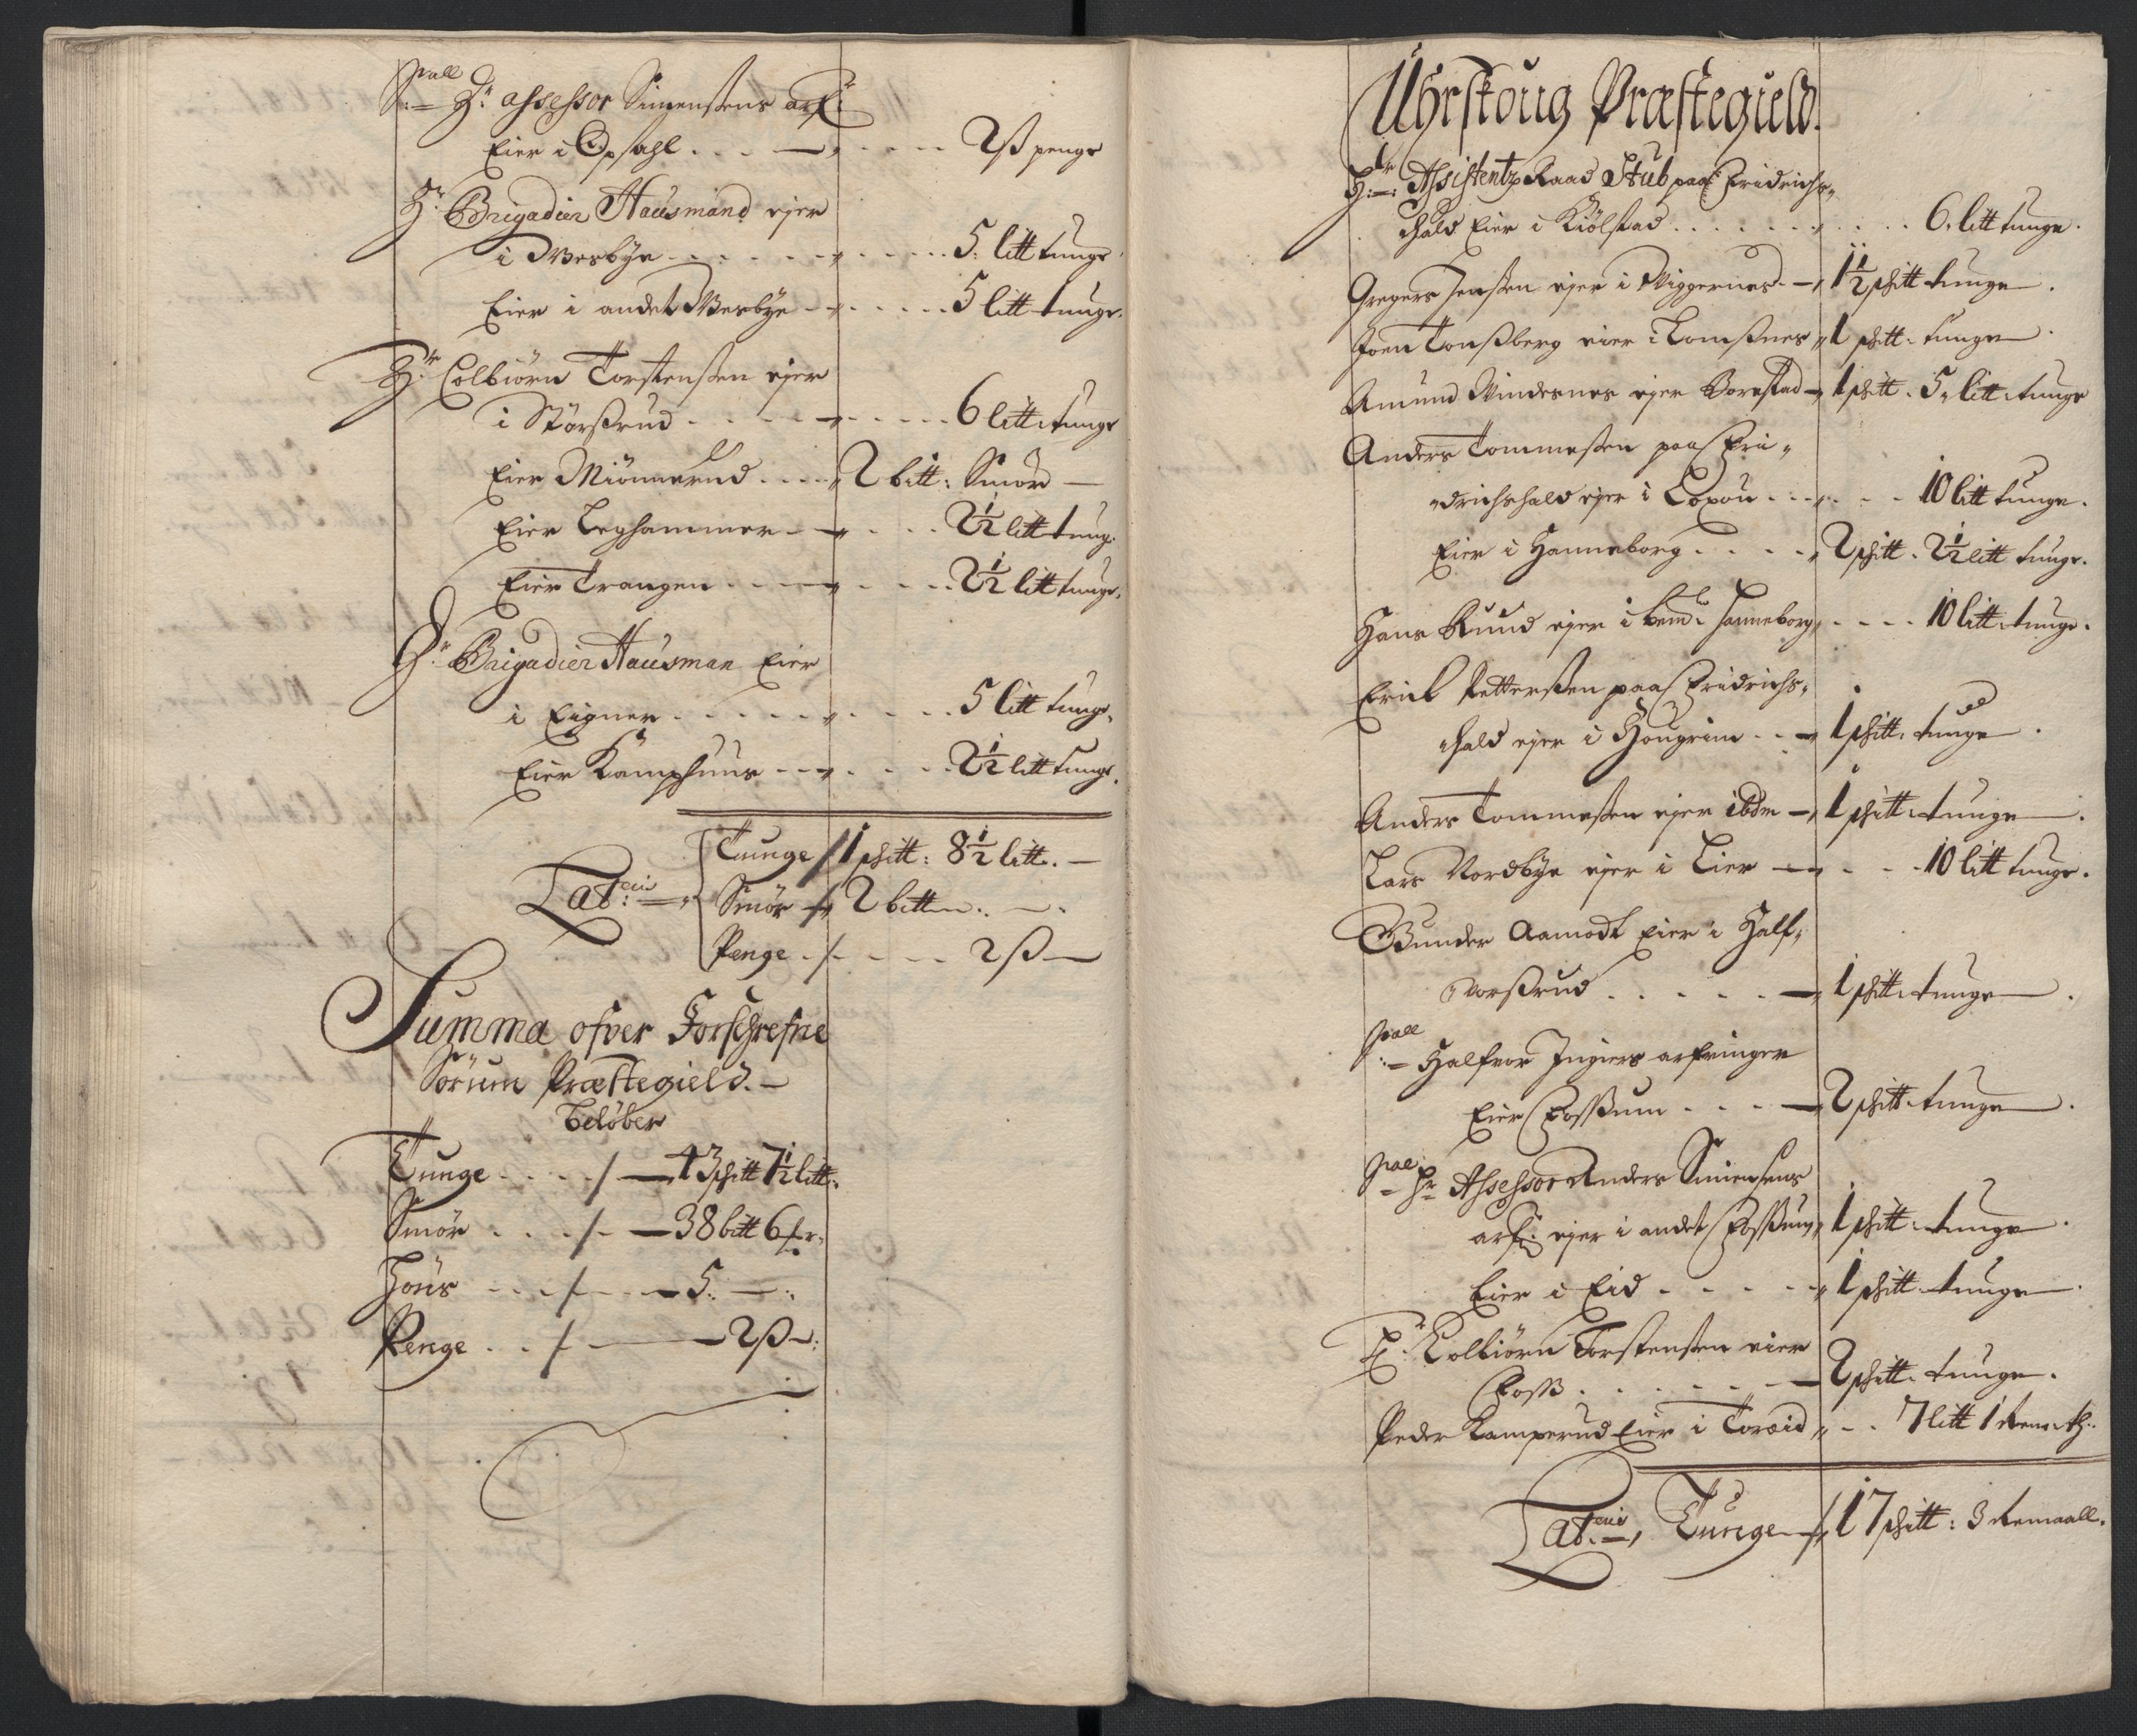 Sall
S:– Hr: assessor Simensens arf:
Eier i Opsahl . . . — „ . . . . 2 ß penge
Hr: Brigadier Hausmand ejer
i Wesbye . . . . . . „ . . . . 5: litt tunge
Eier i andet Wesbye – „ . . . . . 5 litt tunge.
Hr: Colbiörn Torstensen ejer
i Störsrud . . . . „ . . . . . 6 litt: tunge
Eier Miönnerud . . . . „ 2 bitt: Smör —
Eier Leghammer – „ . . . . 2½ litt tung:
Eier Trangen . . . . „ . . . . 2½ litt tunge.
Hr: Brigadier Hausman Eier
i Eigner . . . . . . „ . . . . . 5 litt tunge.
Eier Kamphuus – – „ . . . . 2½ litt tunge.
Lateris: – „ Tunge / 1 schitt: 8½ litt. —
Smör „ 2 bitt . . —
Penge . / . . . . . 2 ß —
Summa ofver Forschrefne
Sörum Præstegield. –
belöber
Tunge . . . . / — 43 schitt 7½ litt:
Smör . . . / – — 38 bitt 6 fr.
Hous . . . / . . . – 5. — :
Penge . . / . — — 2 ß –:
Uhrskoug Præstegield.
Hr: Assistentz Raad Stub paa Fridrichs„
hald Eier i Kiölstad . . . . . . „ . . . . 6. litt tunge.
Gregers Jensen ejer i Wiggernes – „ 1½ schitt tunge .
Joen Tonsberg eier i Tomsnes „ 1 schitt: tunge
Amund Vindesnes ejer Borestad – „ 1 schitt. 5„ litt: tunge
Anders Tommesen paa Fri„
„drichshald ejer i Loxou . . . „ . . . 10 litt tunge.
Eier i Hanneborg . . . . „ 2 schitt. 2½ litt tunge.
Hans Ruud ejer i bemte Hanneborg „ . . . . 10 litt: tunge.
Erich Pettersen paa Fridrichs„
„hald ejer i Hougrim . . – „ 1 schitt. tunge .
Anders Tommesen ejer ibdm – „ 1 schitt: tunge .
Lars Nordbye ejer i Lier — „ . . . 10 litt tunge.
Gunder Aamodt Eier i Half„
„vorsrud . . . . . — „ 1 schitt: tunge .
Sall
:– Halfvor Ingiers arfvinger
Eier Fossum . . . — 2 schitt: tunge .
Sall
– Hr: Assessor Anders Simensens
arf: ejer i andet Fossum „ 1 schitt: tunge .
Eier i Eid . . . . . „ 1 schitt: tunge .
Hr: Colbiörn Torstensen eier
Foss . . . . . . — 2 schitt. tunge .
Peder Kamperud Eier i Toreid „ – . 7 litt 1 Rem: th:
Lateris: –, Tunge – „ 17 schitt: 3 Remaall.